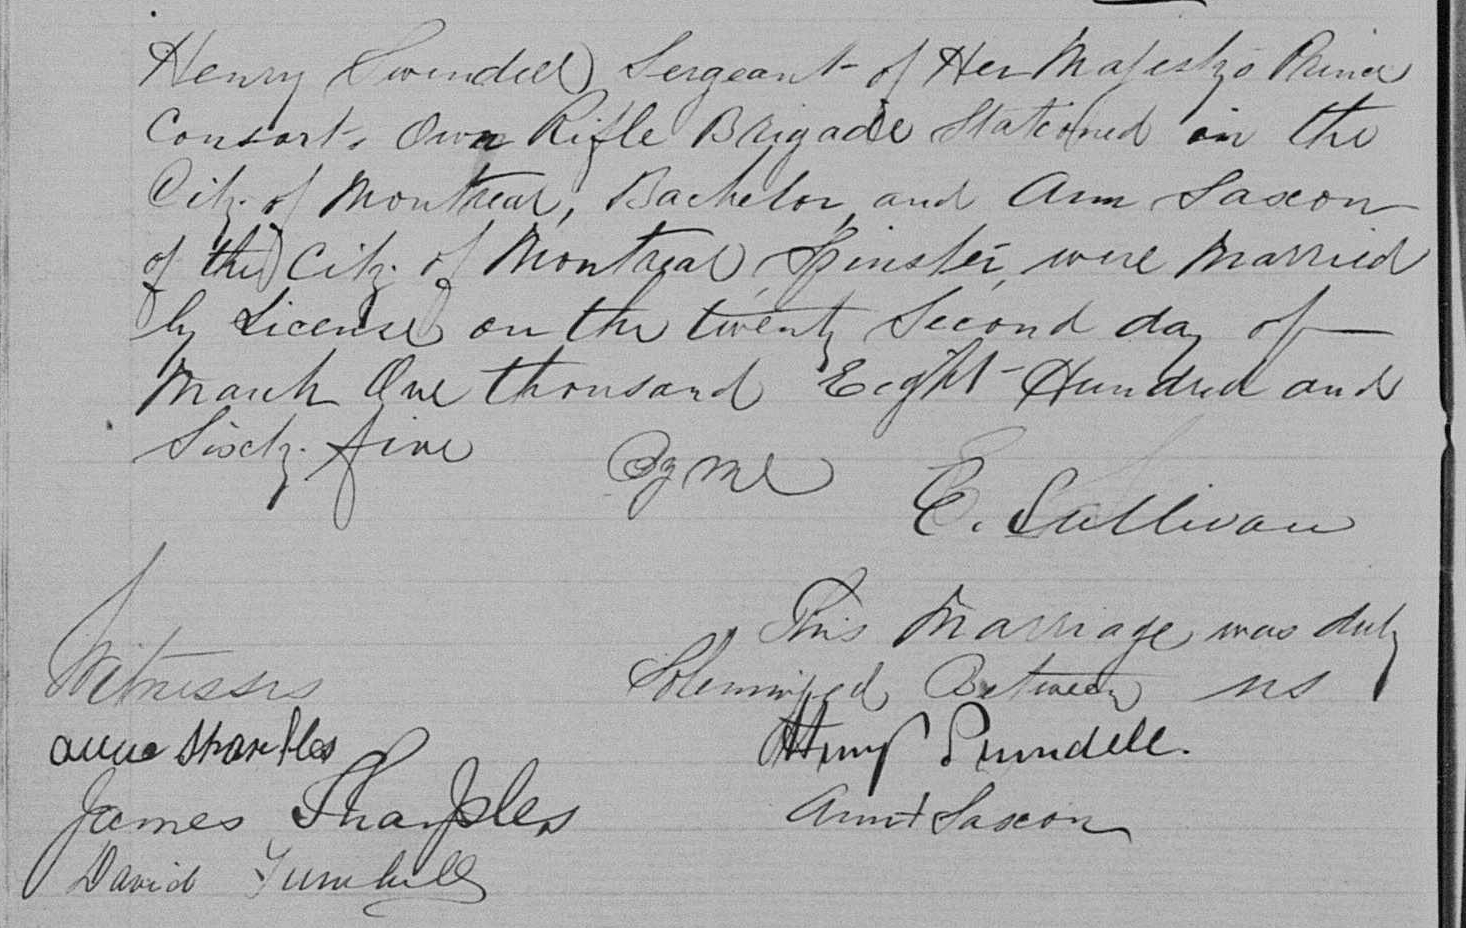 Henry Swindell Sergeant of Her Majesty's Prince
Consort's Own Rifle Brigade Stationed in the
City of Montreal, Bachelor, and Ann Saxon
of the City of Montreal, Spinster, were Married
by License on the twenty Second day of
March One thousand Eight Hundred and
Sixty five
By me
E. Sullivan
This Marriage was duly
Solemnized Between us
Henry Swindell.
Ann + Saxon
Witnesses
Anne Sharples
James Sharples
David Turnbull